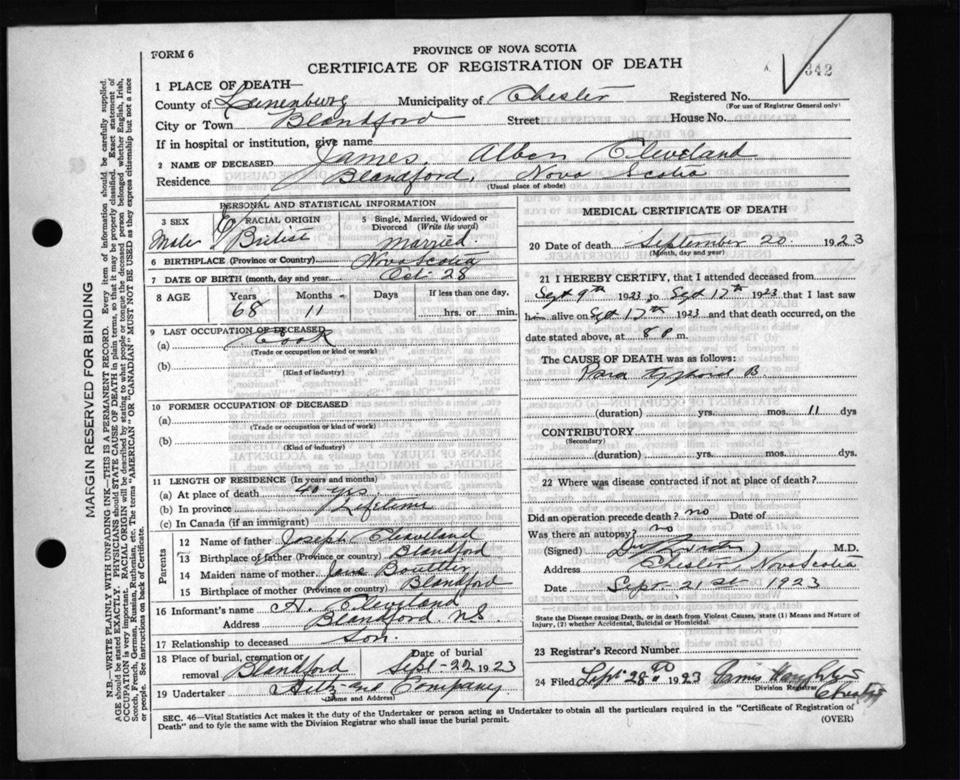 FORM 6
PROVINCE OF NOVA SCOTIA
CERTIFICATE OF REGISTRATION OF DEATH
342
1 PLACE OF DEATH—
County of Lunenburg Municipality of Chester Registered No.
(For use of Registrar General only)
City or Town Blandford Street House No.
If in hospital or institution, give name
2 NAME OF DECEASED James Alben Cleveland
Residence Blandford, Nova Scotia
(Usual place of abode)
PERSONAL AND STATISTICAL INFORMATION
3 SEX Male
4 RACIAL ORIGIN British
5 Single, Married, Widowed or Divorced (Write the word) Married.
6 BIRTHPLACE (Province or Country) Nova Scotia
7 DATE OF BIRTH (month, day and year) Oct 28
8 AGE Years Months Days If less than one day,
68 11 hrs. or min.
9 LAST OCCUPATION OF DECEASED
(a) Cook
(Trade or occupation or kind of work)
(b)
(Kind of industry)
10 FORMER OCCUPATION OF DECEASED
(a)
(Trade or occupation or kind of work)
(b)
(Kind of industry)
11 LENGTH OF RESIDENCE (In years and months)
(a) At place of death 40 yrs.
(b) In province Lifetime
(c) In Canada (if an immigrant)
Parents
12 Name of father Joseph Cleveland
13 Birthplace of father (Province or country) Blandford
14 Maiden name of mother Jane Boutlier
15 Birthplace of mother (Province or country) Blandford
16 Informant's name A. Cleveland
Address Blandford N.S
17 Relationship to deceased Son.
18 Place of burial, cremation or removal Blandford Sept-22 1923
19 Undertaker and Company
(Name and Address)
MEDICAL CERTIFICATE OF DEATH
20 Date of death September 20 1923
(Month, day and year)
21 I HEREBY CERTIFY, that I attended deceased from
Sept 9th 1923 to Sept 17th 1923 that I last saw
him alive on Sept 17th 1923 and that death occurred, on
date stated above, at 8 P m.
The CAUSE OF DEATH was as follows:
Para typhoid B
(duration) yrs. mos. 11 dys
CONTRIBUTORY
(Secondary)
(duration) yrs. mos. dys.
22 Where was disease contracted if not at place of death?
Did an operation precede death? no Date of
Was there an autopsy? no
(Signed) M.D.
Address Chester, Nova Scotia
Date Sept. 21st 1923
State the Disease causing Death, or in death from Violent Causes, state (1) Means and Nature of
Injury, (2) whether Accidental, Suicidal or Homicidal.
23 Registrar's Record Number
24 Filed Sept. 28 1923 James
Division Registrar
SEC. 46—Vital Statistics Act makes it the duty of the Undertaker or person acting as Undertaker to obtain all the particulars required in the "Certificate of Registration of
Death" and to fyle the same with the Division Registrar who shall issue the burial permit.
(OVER)
MARGIN RESERVED FOR BINDING
N.B.—WRITE PLAINLY WITH UNFADING INK—THIS IS A PERMANENT RECORD. Every item of information should be carefully supplied.
AGE should be stated EXACTLY. PHYSICIANS should STATE CAUSE OF DEATH in plain terms, so that it may be properly classified. Exact statement of
OCCUPATION is very important. RACIAL ORIGIN will be described by stating to what people or tongue the deceased person belonged whether English, Irish,
Scotch, French, German, Russian, Ruthenian, etc. The terms "AMERICAN" OR "CANADIAN" MUST NOT BE USED as they express citizenship but not a race
or people. See instructions on back of Certificate.